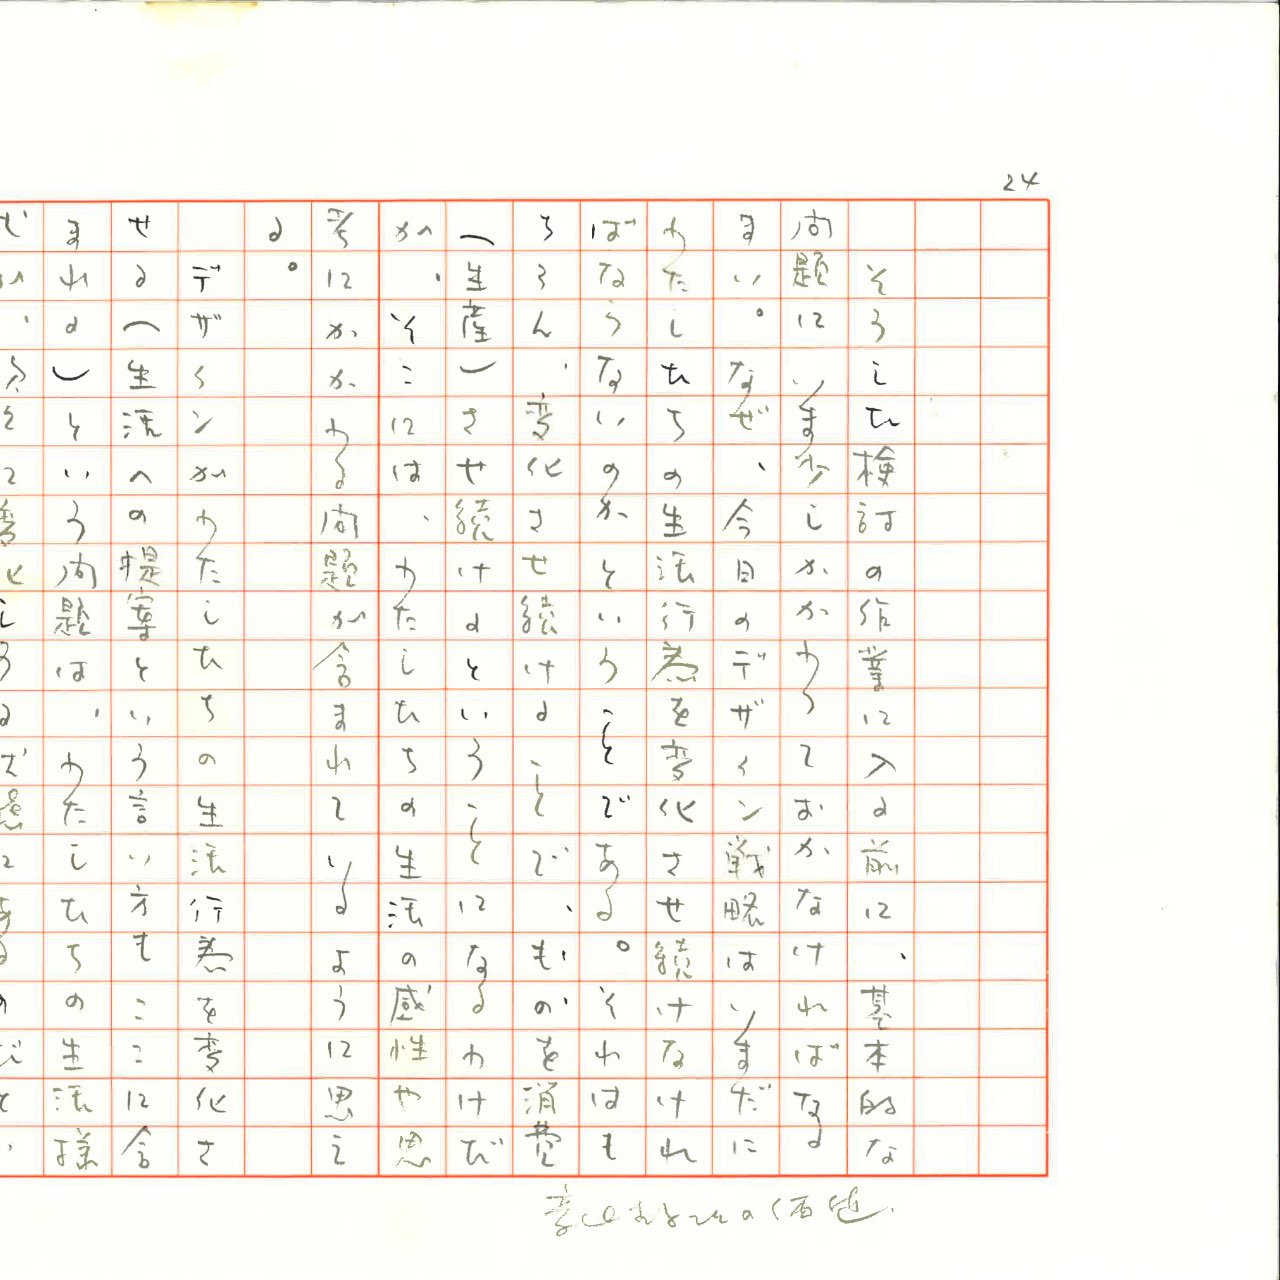 24
そうした検討の作業に入る前に、基本的な
問題にいま少しかかわっておかなければなる
まい。なぜ、今日のデザイン戦略はいまだに
わたしたちの生活行為を変化させ続けなけれ
ばならないのかということである。それはも
ちろん、変化させ続けることで、ものを消費
(生産)させ続けるということになるわけだ
が、そこには、わたしたちの生活の感性や思
考にかかわる問題が含まれているように思え
る。
デザインがわたしたちの生活行為を変化さ
せる(生活への提案という言い方もここに含
まれる)という問題は、わたしたちの生活様